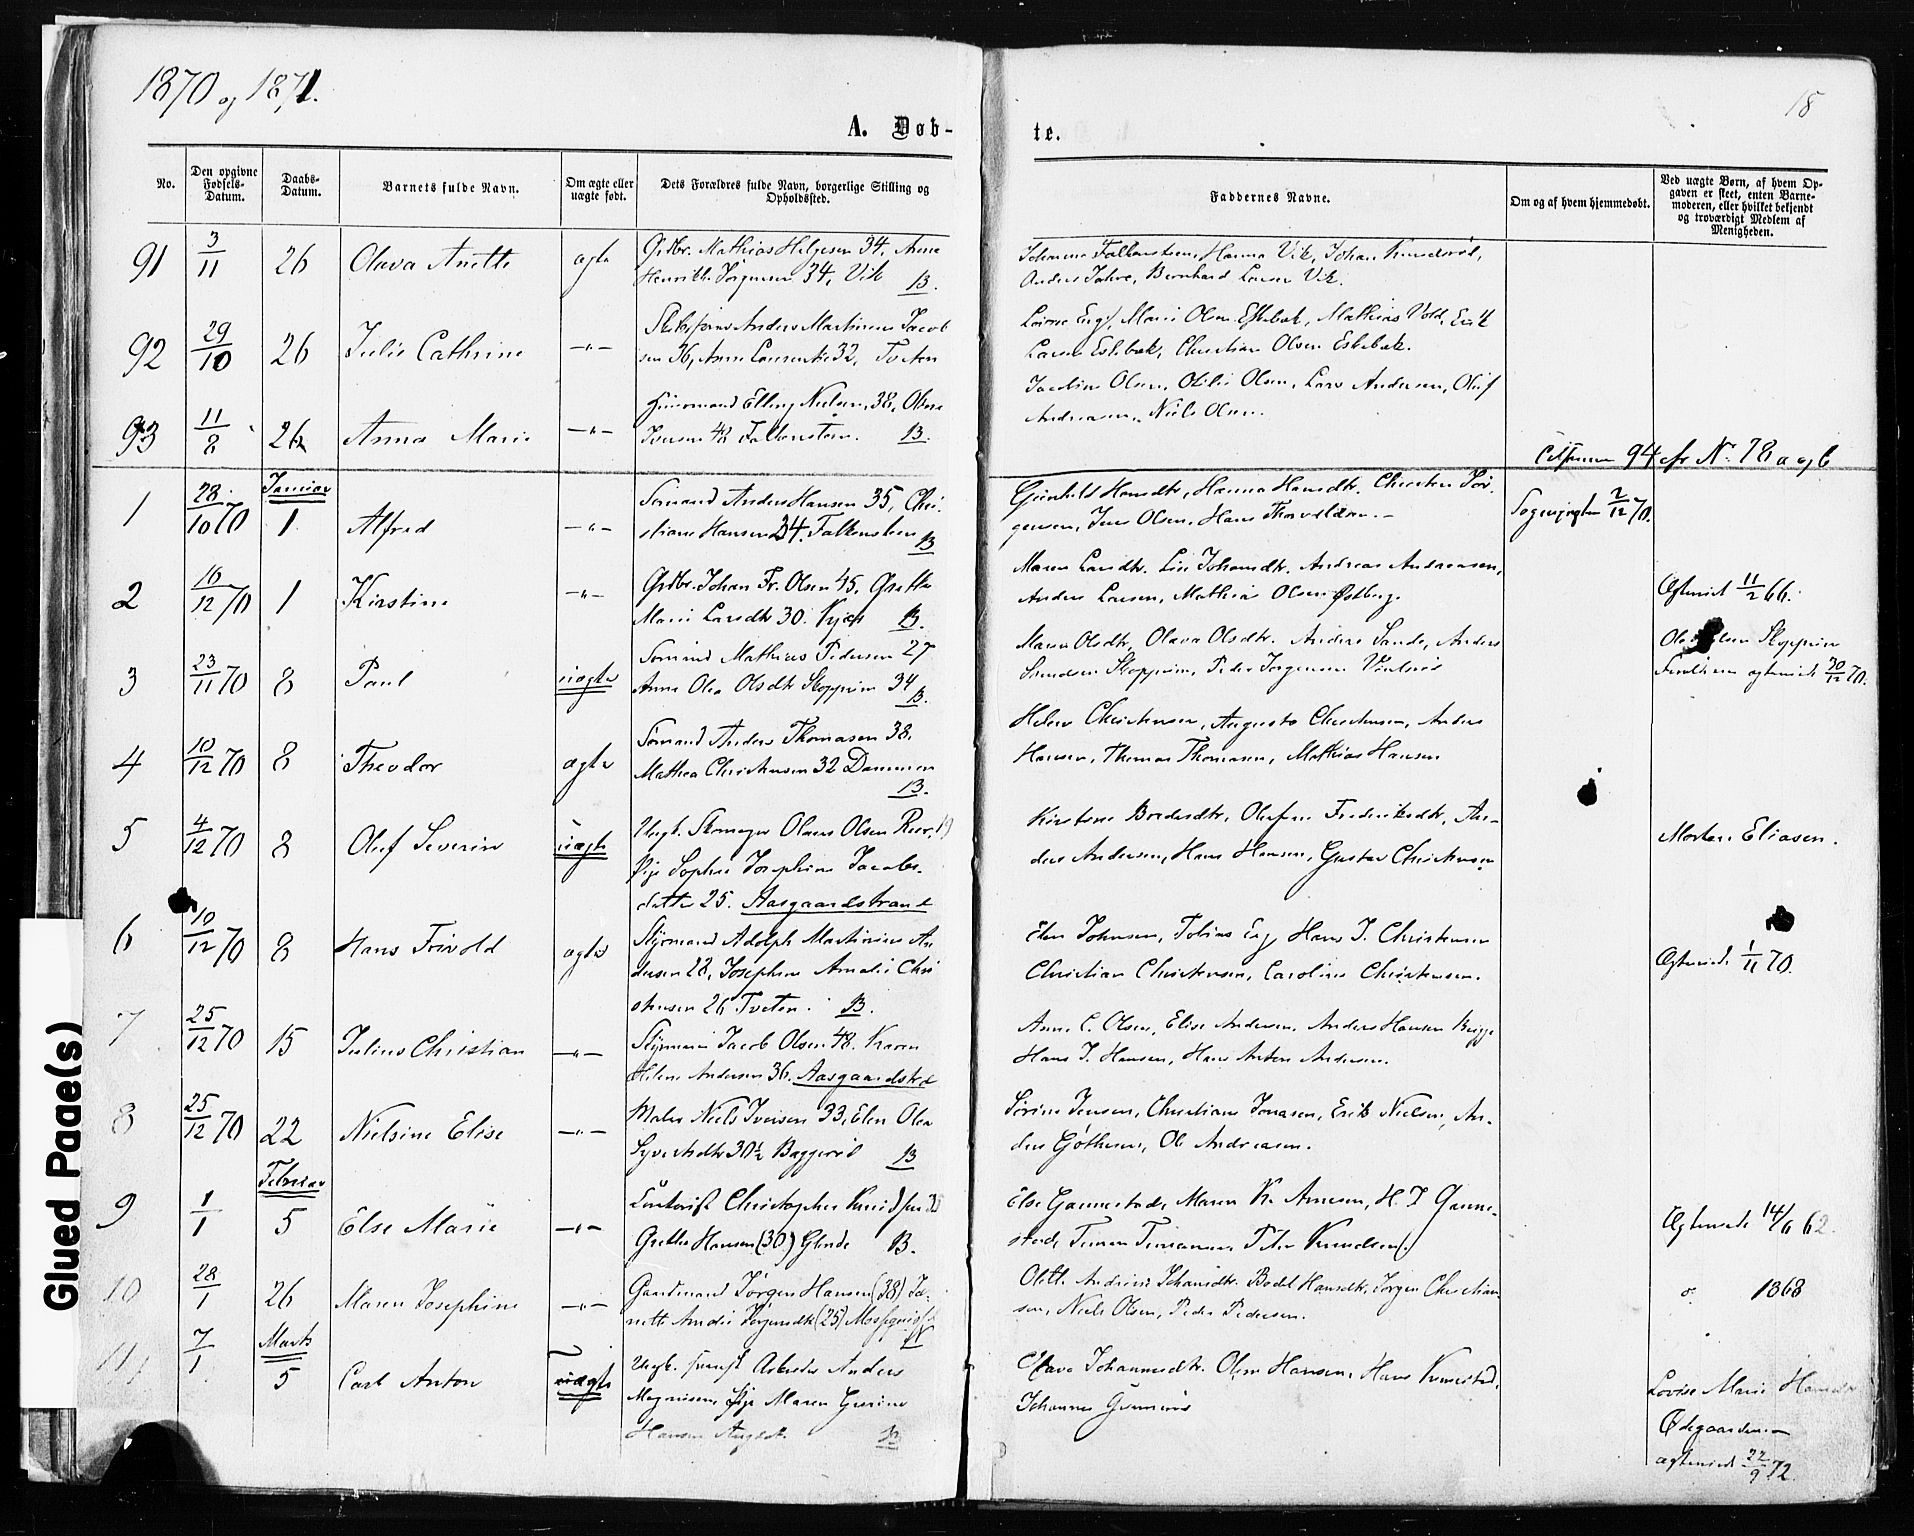 1870 og 1871.
18
A. Døb-
te.
No.
Den opgivne Fødsels-Datum.
Daabs-Datum.
Barnets fulde Navn.
Om ægte eller uægte født.
Dets Forældres fulde Navn, borgerlige Stilling og Opholdssted.
Faddernes Navne.
Om og af hvem hjemmedøbt.
Ved uægte Børn, af hvem Opgaven er skeet, enten Barnemoderen, eller hvilket bekjendt og troværdigt Medlem af Menigheden.
91 3/11 26 Olava Anette ægte Grdbr. Mathias Helgesen 34, Anne
Henriette Jørgensen 34, Vik B.
Johanne Falkensteen, Hanna Vik, Johan Knudsrød,
Anders Jahre, Bernhard Larsen Vik.
92 29/10 26 Julie Cathrine —"— Skibsfører Anders Martinsen Jacob
sen 36, Anne Laurentie 32, Tveten
Lovise Eeg, Marie Olsen Eskebæk, Mathias Vold, Erik
Larsen Eskebæk, Christian Olsen Eskebæk.
93 11/8 26 Anna Marie —"— Huusmand Elling Nielsen, 38, Olene
Iversen 42 Falkensteen. B.
Jacobine Olsen, Otilie Olsen, Lars Andersen, Oluf
Andreasen, Niels Olsen.
94 cfr No. 78 a og b
1 28/10 70 Januar 1 Alfred —"— Sømand Anders Hansen 35, Chri-
stiane Hansen 34. Falkensteen B
Gunhild Hansdtr, Hanna Hansdtr. Christen Jør-
gensen, Jens Olsen, Hans Thorvaldsen.—
2/12 70.
2 16/12 70 1 Kirstine —"— Grdbr. Johan Fr. Olsen 45, Grethe
Marie Larsdtr 30. B.
Maren Larsdtr. Lise Johansdtr. Andreas Andreasen,
Anders Larsen, Mathias Olsen Østberg.
Ægteviet 11/2 66.
3 23/11 70 8 Paul uægte Sømand Mathias Pedersen 27
Anne Olea Olsdtr Skoppum 34 B.
Maren Olsdtr, Olava Olsdtr. Anders Sande, Anders
Skoppum, Peder Jørgensen
Skoppum
ægteviede 30/12 70.
4 10/12 70 8 Theodor ægte Sømand Anders Thomasen 38,
Mathea Christensen 32 Dammen
B.
Helene Christensen, Augusta Christensen, Anders
Hansen, Thomas Thomasen, Mathias Hansen
5 4/12 70 8 Oluf Severin uægte Ungk. Skomager Olaus Olsen
Pige Sophie Josephine Jacobs-
datter 25. Aasgaardstrand
Kirstine Andersdtr, Olufine Frederiksdtr, An-
ders Andersen, Hans Hansen, Gustav Christensen
Morten Eliasen.
6 10/12 70 8 Hans Trivold ægte Styrmand Adolph Martinius An
dersen 28, Josephine Amalie Chri
stensen 26 Tveten. B.
Elen Johnsen, Tobias Eeg, Hans J. Christensen
Christian Christensen, Caroline Christensen.
Ægteviede 1/11 70.
7 25/12 70 15 Julius Christian —"— Styrmand Jacob Olsen 48. Karen
Helene Andersen 36. Aasgaardstrd
Anne C. Olsen, Elise Andersen, Anders Hansen Bugge
Hans J. Hansen, Hans Anton Andersen.
8 25/12 70 22 Nielsine Elise —"— Maler Niels Iversen 33, Elen Olea
Syvertsdtr 30½ Baggerød B
Sørine Jensen, Christiane Jonasen, Erik Nielsen, An-
ders Gøthesen, Ole Andreasen.
9 1/1 Februar 5 Else Marie —"— Christopher
Grethe Hansen (30) Glende B.
Else Gannestad, Maren Kr. Arnesen, H. J. Ganne-
stad, Timan Timansen Peter Knudsen.
Ægteviede 14/6 62.
10 28/1 26 Maren Josephine —"— Gaardmand Jørgen Hansen (38) Ja-
nette Amalie Jørgensdtr (25)
Oleth. Andrine Johansdtr. Bodel Hansdtr, Jørgen Christian
sen, Niels Olsen, Peder Pedersen.
1868
11 7/1 Marts 5 Carl Anton uægte Ungk. Arbeider Anders
Magnusen, Pige Maren Gurine
Hansen
Olava Johannesdtr. Oline Hansen, Hans
Johannes
Lovise Marie
Ødegaarden—
ægteviet 22/9 72.
Glued Page(s)